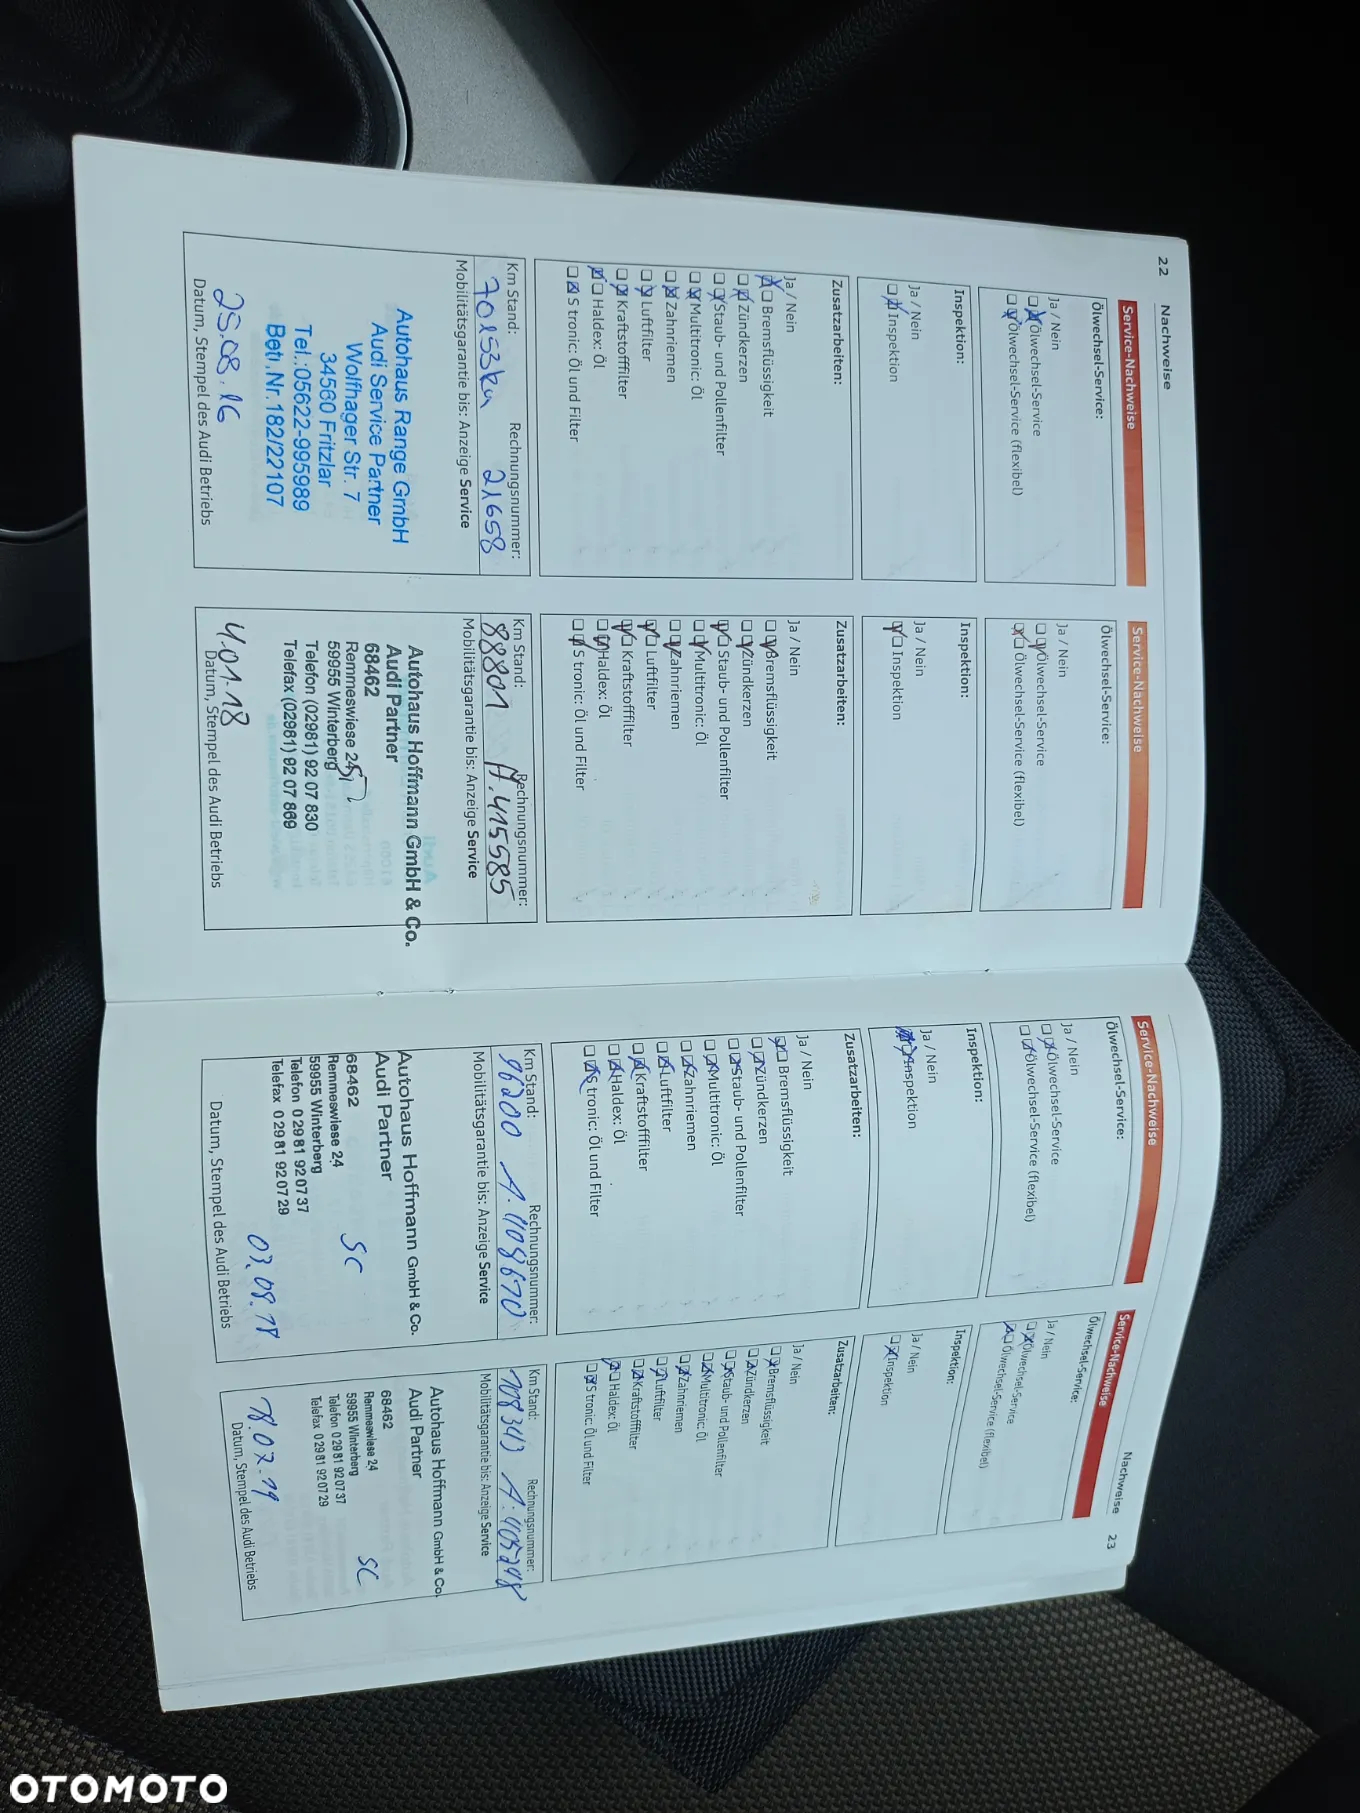 22 Nachweise
Service-Nachweise
Ölwechsel-Service:
Ja / Nein
Ölwechsel-Service
Ölwechsel-Service (flexibel)
Inspektion:
Ja / Nein
Inspektion
Zusatzarbeiten:
Ja / Nein
Bremsflüssigkeit
Zündkerzen
Staub- und Pollenfilter
Multitronic: Öl
Zahnriemen
Luftfilter
Kraftstofffilter
Haldex: Öl
S tronic: Öl und Filter
Km Stand: Rechnungsnummer:
70153km 21658
Mobilitätsgarantie bis: Anzeige Service
Autohaus Range GmbH
Audi Service Partner
Wolfhager Str. 7
34560 Fritzlar
Tel.:05622-995989
Betr.Nr.182/22107
25.08.16
Datum, Stempel des Audi Betriebs
Service-Nachweise
Ölwechsel-Service:
Ja / Nein
Ölwechsel-Service
Ölwechsel-Service (flexibel)
Inspektion:
Ja / Nein
Inspektion
Zusatzarbeiten:
Ja / Nein
Bremsflüssigkeit
Zündkerzen
Staub- und Pollenfilter
Multitronic: Öl
Zahnriemen
Luftfilter
Kraftstofffilter
Haldex: Öl
S tronic: Öl und Filter
Km Stand: Rechnungsnummer:
88801 A.415585
Mobilitätsgarantie bis: Anzeige Service
Autohaus Hoffmann GmbH & Co.
Audi Partner
68462
Remmeswiese 24
59955 Winterberg
Telefon (02981) 92 07 830
Telefax (02981) 92 07 869
4.01.18
Datum, Stempel des Audi Betriebs
Service-Nachweise
Ölwechsel-Service:
Ja / Nein
Ölwechsel-Service
Ölwechsel-Service (flexibel)
Inspektion:
Ja / Nein
Inspektion
Zusatzarbeiten:
Ja / Nein
Bremsflüssigkeit
Zündkerzen
Staub- und Pollenfilter
Multitronic: Öl
Zahnriemen
Luftfilter
Kraftstofffilter
Haldex: Öl
S tronic: Öl und Filter
Km Stand: Rechnungsnummer:
96200
Mobilitätsgarantie bis: Anzeige Service
Autohaus Hoffmann GmbH & Co.
Audi Partner
68462
Remmeswiese 24
59955 Winterberg
Telefon 0 29 81 92 07 37
Telefax 0 29 81 92 07 29
SC
03.08.18
Datum, Stempel des Audi Betriebs
Nachweise 23
Service-Nachweise
Ölwechsel-Service:
Ja / Nein
Ölwechsel-Service
Ölwechsel-Service (flexibel)
Inspektion:
Ja / Nein
Inspektion
Zusatzarbeiten:
Ja / Nein
Bremsflüssigkeit
Zündkerzen
Staub- und Pollenfilter
Multitronic: Öl
Zahnriemen
Luftfilter
Kraftstofffilter
Haldex: Öl
S tronic: Öl und Filter
Km Stand: Rechnungsnummer:
108343
Mobilitätsgarantie bis: Anzeige Service
Autohaus Hoffmann GmbH & Co.
Audi Partner
68462
Remmeswiese 24
59955 Winterberg
Telefon 0 29 81 92 07 37
Telefax 0 29 81 92 07 29
SC
Datum, Stempel des Audi Betriebs
OTOMOTO